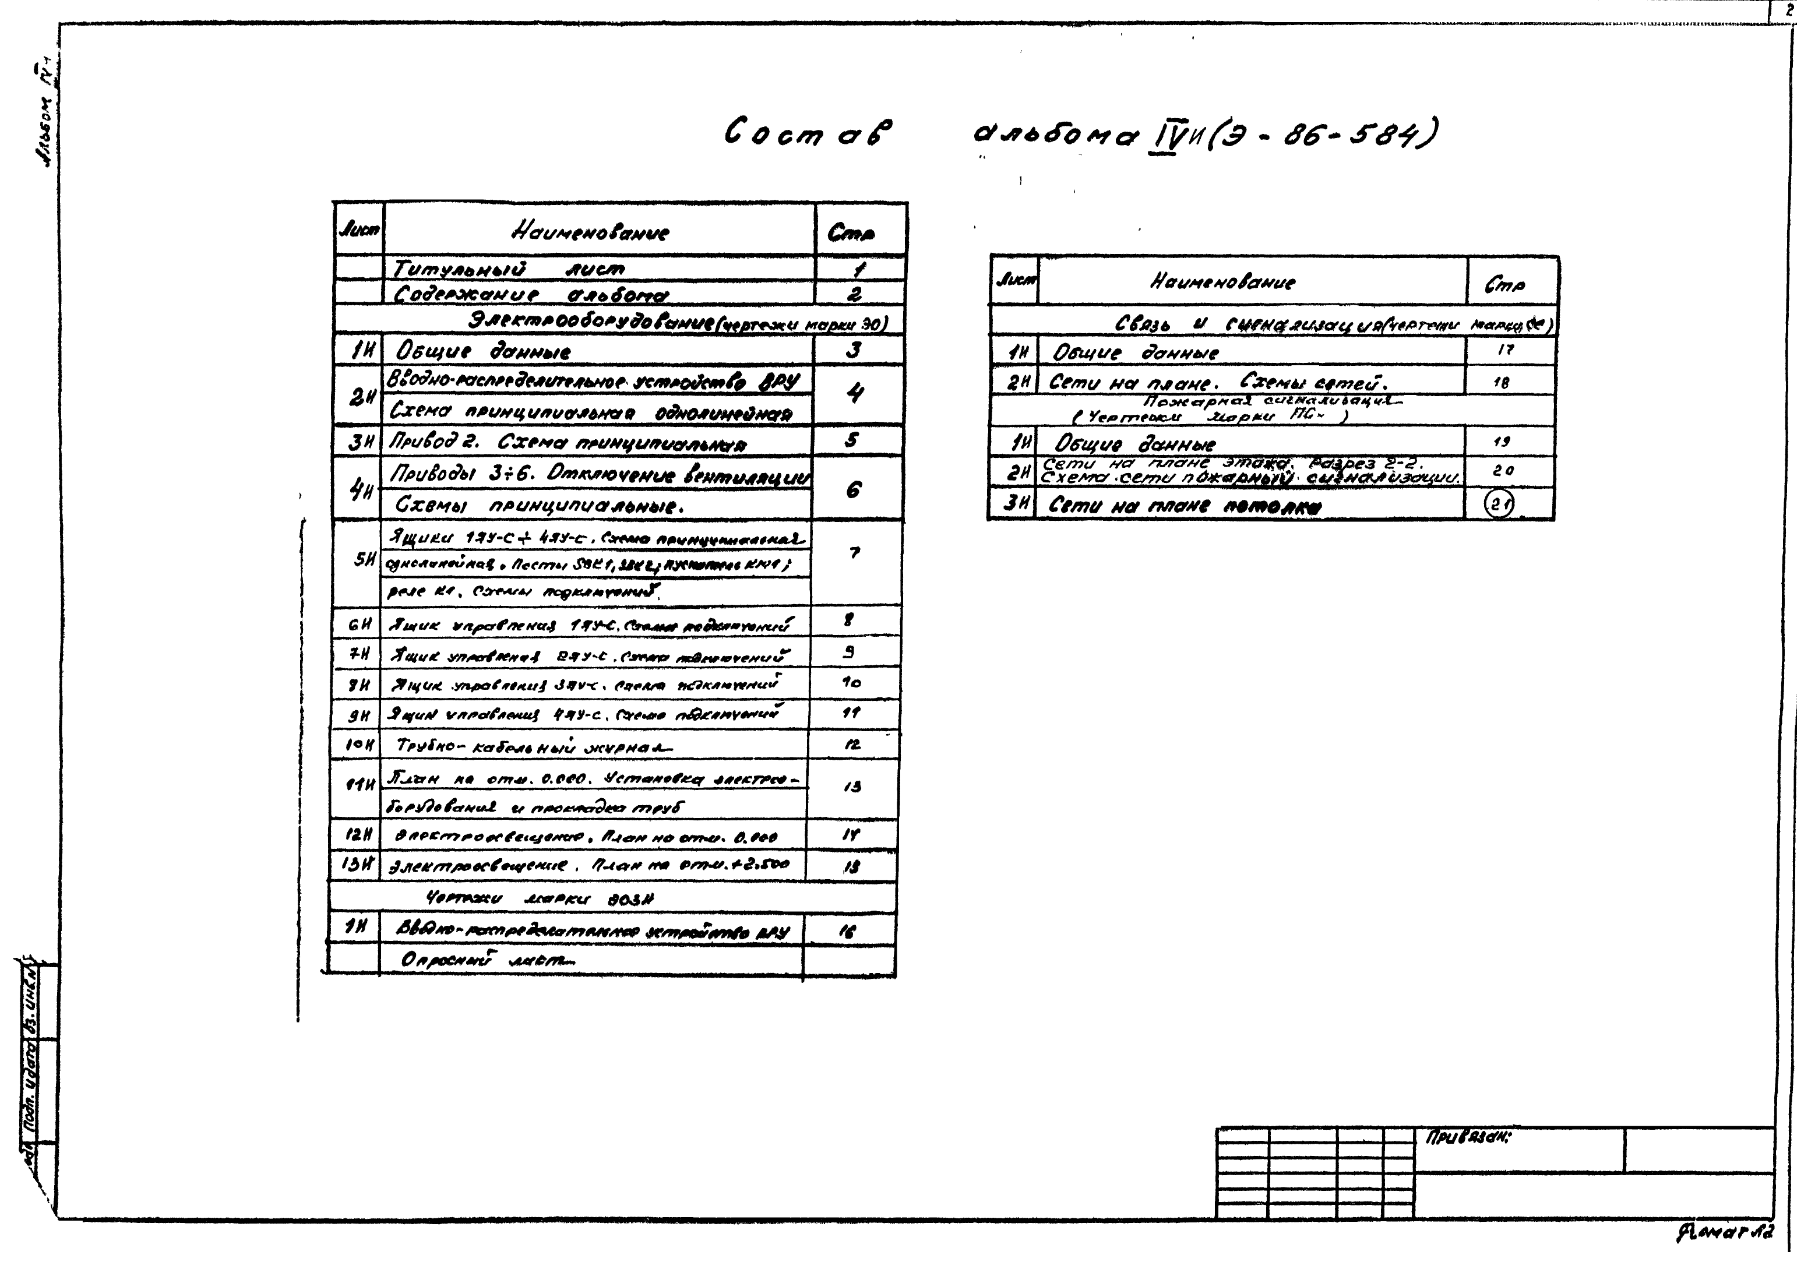 2
Альбом IV-1
Состав альбома IVИ (Э-86-584)
Лист Наименование Стр
Титульный лист 1
Содержание альбома 2
Электрооборудование (чертежи марки ЭО)
1И Общие данные 3
2И Вводно-распределительное устройство ВРУ 4
Схема принципиальная однолинейная
3И Привод 2. Схема принципиальная 5
4И Приводы 3÷6. Отключение вентиляции 6
Схемы принципиальные.
5И Ящики 1ЯУ-С ÷ 4ЯУ-С. Схема принципиальная 7
однолинейная. Посты SBK1, SBK2; пускатель КМ1;
реле К1. Схемы подключений.
6И Ящик управления 1ЯУ-С. Схема подключений 8
7И Ящик управления 2ЯУ-С. Схема подключений 9
8И Ящик управления 3ЯУ-С. Схема подключений 10
9И Ящик управления 4ЯУ-С. Схема подключений 11
10И Трубно-кабельный журнал 12
11И План на отм. 0.000. Установка электроо- 13
борудования и прокладка труб
12И Электроосвещение. План на отм. 0.000 14
13И Электроосвещение. План на отм. +2.500 15
Чертежи марки ЭОЗИ
1И Вводно-распределительное устройство ВРУ 16
Опросный лист
Лист Наименование Стр
Связь и сигнализация (чертежи марки СС)
1И Общие данные 17
2И Сети на плане. Схемы сетей. 18
Пожарная сигнализация
(Чертежи марки ПС)
1И Общие данные 19
2И Сети на плане этажа. Разрез 2-2. 20
Схема сети пожарный сигнализации.
3И Сети на плане потолка 21
Вз. инв. №
Подп. и дата
Привязан:
Формат А2